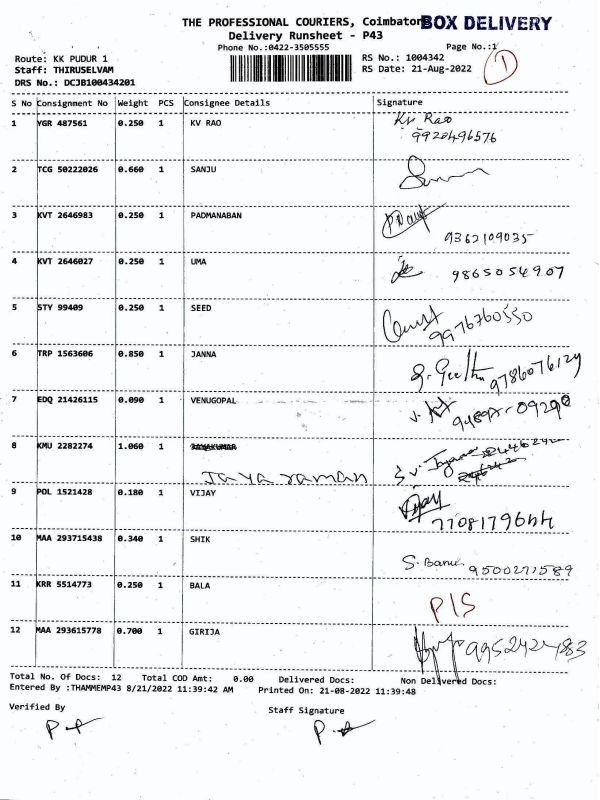 THE PROFESSIONAL COURIERS, Coimbatore BOX DELIVERY
Delivery Runsheet - P43
Phone No.:0422-3505555 Page No.:1
Route: KK PUDUR 1 RS No.: 1004342 1
Staff: THIRUSELVAM RS Date: 21-Aug-2022
DRS No.: DCJB100434201
S No Consignment No Weight PCS Consignee Details Signature
1 YGR 487561 0.250 1 KV RAO Kv Rao
9920496576
2 TCG 50222026 0.660 1 SANJU
3 KVT 2646983 0.250 1 PADMANABAN
9362109035
4 KVT 2646027 0.250 1 UMA 9865054907
5 STY 99409 0.250 1 SEED
9976760550
6 TRP 1563606 0.850 1 JANNA
9786076129
7 EDQ 21426115 0.090 1 VENUGOPAL
94897-09290
8 KMU 2282274 1.060 1
Jaya raman
9 POL 1521428 0.180 1 VIJAY
7708179644
10 MAA 293715438 0.340 1 SHIK
S. Banu 9500271589
11 KRR 5514773 0.250 1 BALA
P/S
12 MAA 293615778 0.700 1 GIRIJA 9952424483
Total No. Of Docs: 12 Total COD Amt: 0.00 Delivered Docs: Non Delivered Docs:
Entered By :THAMMEMP43 8/21/2022 11:39:42 AM Printed On: 21-08-2022 11:39:48
Verified By Staff Signature